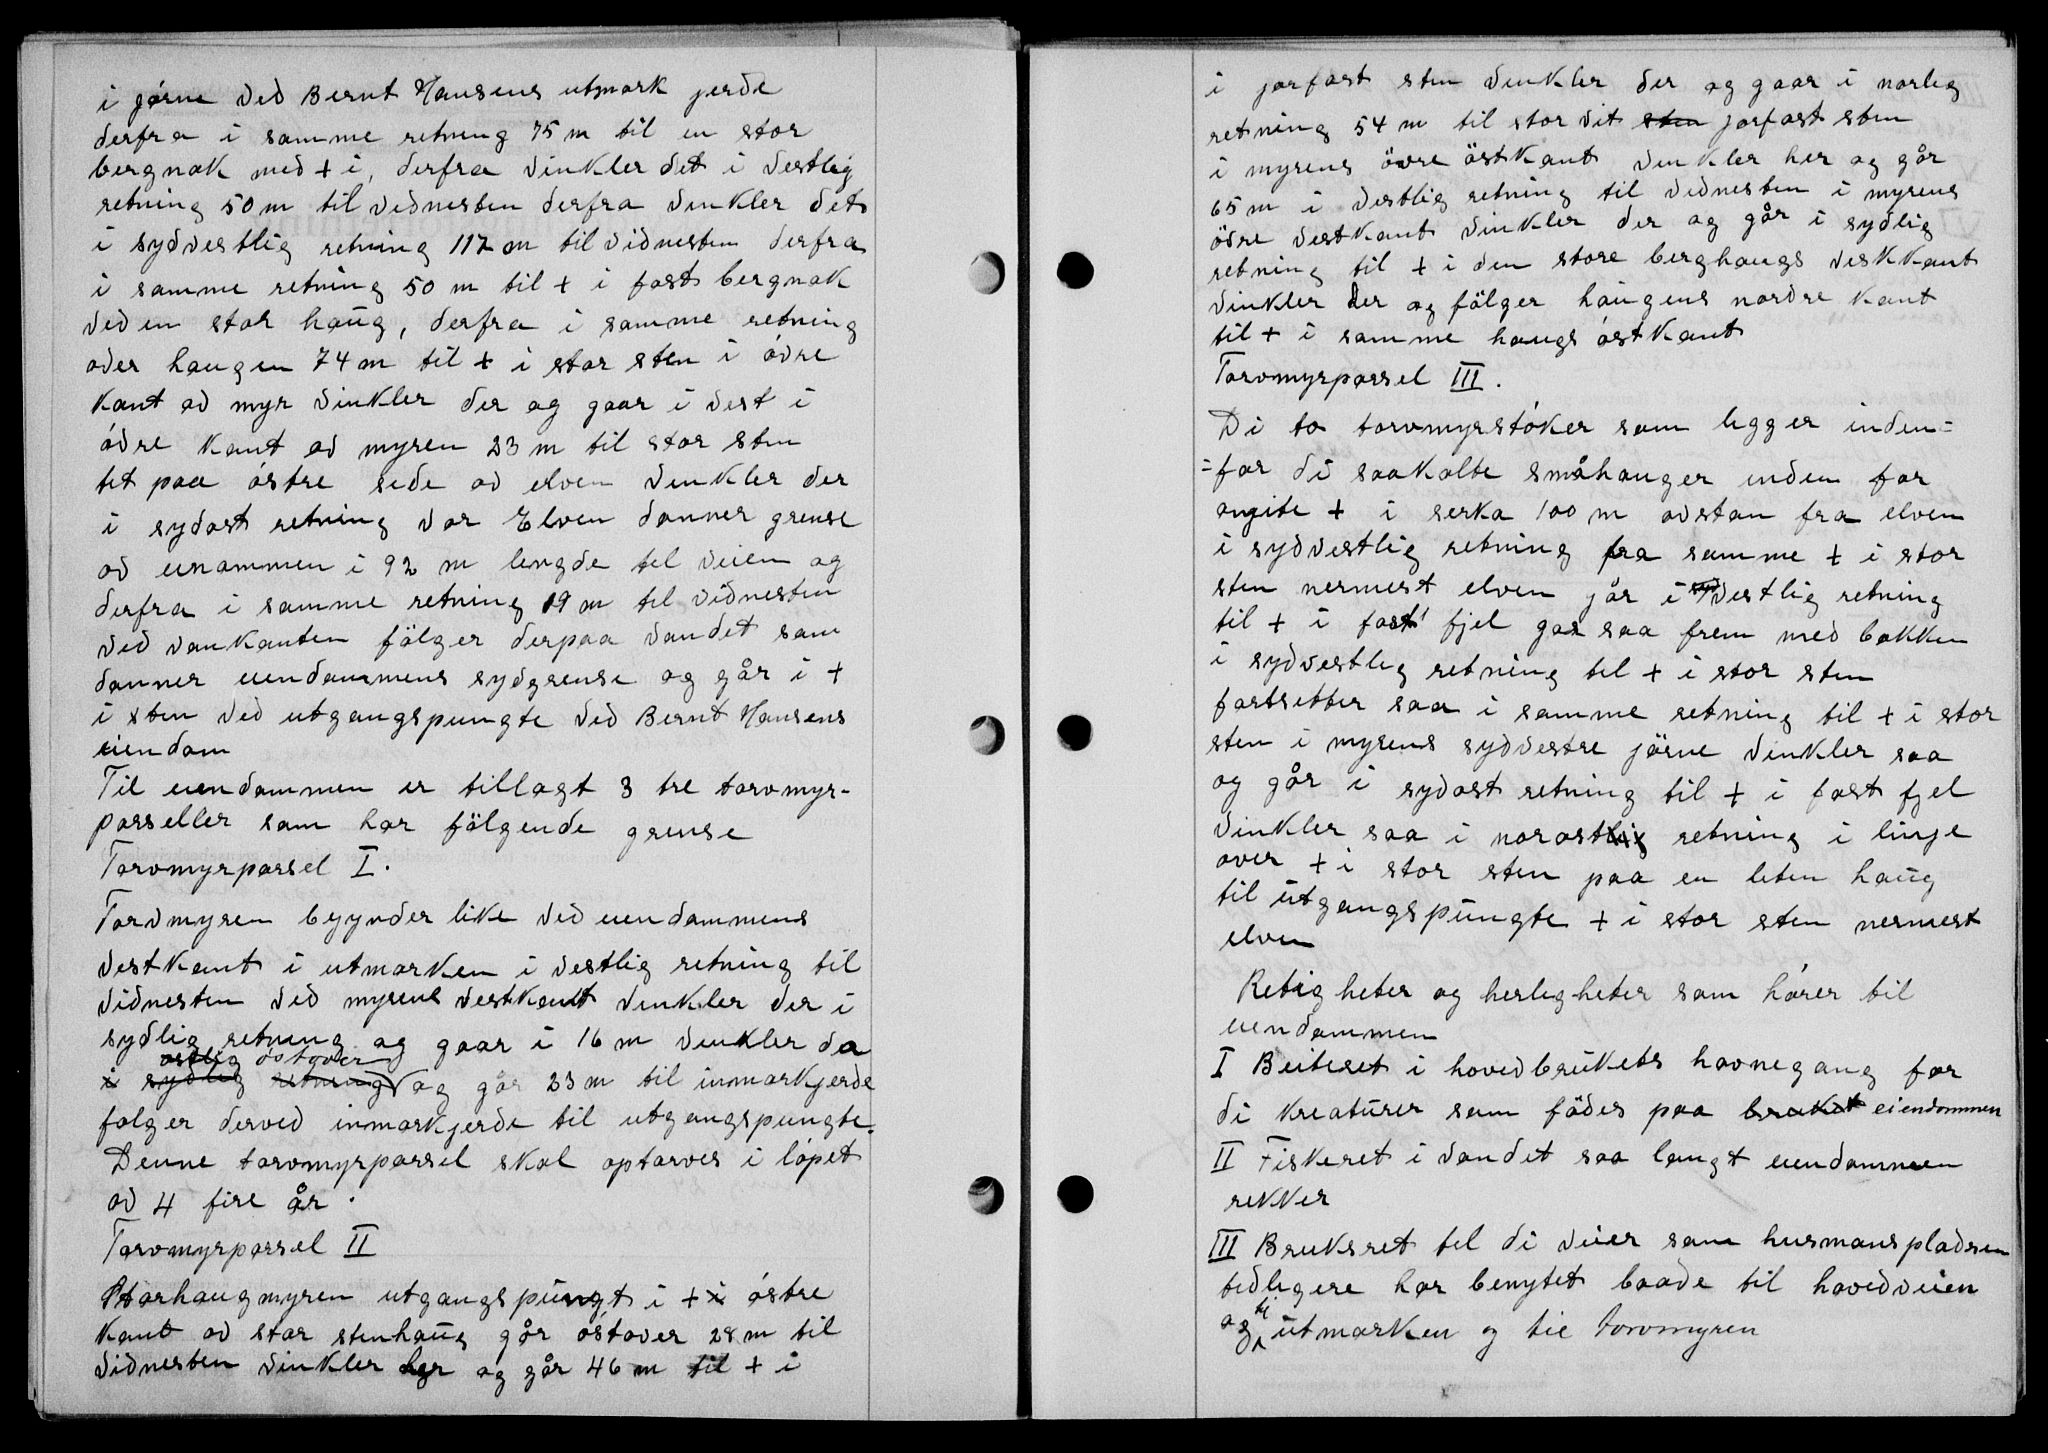 i jörne ved Bernt Hansens utmark jerde
derfra i samme retning 75 m til en stor
bergnak med + i, derfra vinkler det i vestlig
retning 50 m til vidnesten derfra vinkler det
i sydvestlig retning 112 m til vidnesten derfra
i samme retning 50 m til + i fast bergnak
ved en stor haug, derfra i samme retning
over haugen 74 m til + i stor sten i óvre
kant av myr vinkler der og gaar i vest i
óvre kant av myren 23 m til stor sten
tet paa óstre side av elven vinkler der
i sydost retning vor Elven danner grense
av eienammen i 92 m lengde til veien og
derfra i samme retning 19 m til vidnesten
ved vankanten fölger derpaa vandet som
danner eiendammens sydgrense og går i +
i sten ved utgangspungte ved Bernt Hansens
eiendom
Til eiendammen er tillagt 3 tre torvmyr-
parseller som har fölgende grense
Torvmyrparsel I.
Torvmyren beynder like ved eiendammens
vestkant i utmarken i vestlig retning til
vidnesten ved myrens vestkant vinkler der i
sydlig retning og gaar i 16 m vinkler da
ostlig óstover
i sydlig retning og går 23 m til inmarkjerde
folger derved inmarkjerde til utgangspungte.
Denne torvmyrparsel skal optorves i lópet
av 4 fire år.
Torvmyrparsel II
Storhaugmyren utgangspungt i + i óstre
kant av stor stenhaug går óstover 28 m til
vidnesten vinkler her og går 46 m til + i
i jorfast sten vinkler der og gaar i norlig
retning 54 m til stor vit sten jorfast sten
i myrens övre östkant vinkler her og går
65 m i vestlig retning til vidnesten i myrens
övre vestkant vinkler der og går i sydlig
retning til + i den store berghaugs vestkant
vinkler der og fälger haugens nordre kant
til + i samme haugs óstkant
Torvmyrparsel III.
Di to torvmyrstóker som ligger inden=
=for di saakalte småhauger inden for
angite + i serka 100 m avstan fra elven
i sydvestlig retning fra samme + i stor
sten nermest elven går i syd vestlig retning
til + i fast fjel gar saa frem med bakken
i sydvestlig retning til + i stor sten
fortsetter saa i samme retning til + i stor
sten i myrens sydvestre jörne vinkler saa
og går i sydost retning til + i fast fjel
vinkler saa i norostlig retning i linje
over + i stor sten paa en liten haug
til utgangspungte + i stor sten nermest
elven
Retigheter og herligheter som hórer til
eiendammen
I Beiteret i hovedbrukets havnegang for
di kreaturer som födes paa bruket eiendommen
II Fiskeret i vandet saa langt eiendammen
rekker
III Bruksret til di veier som husmansplassen
tidligere har benytet baade til hovedveien
og til utmarken og til torvmyren